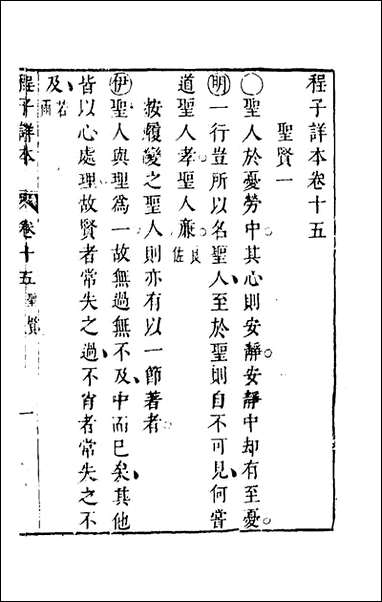 程子詳本卷十五
聖賢一
○聖人於憂勞中其心則安靜安靜中却有至憂
明一行豈所以名聖人至於聖則自不可見何嘗
道聖人孝聖人㢘良佐
按履變之聖人則亦有以一節著者
伊聖人與理爲一故無過無不及中而巳矣其他
皆以心處理故賢者常失之過不肖者常失之不
及若雨
程子詳本 卷十五 聖賢 一